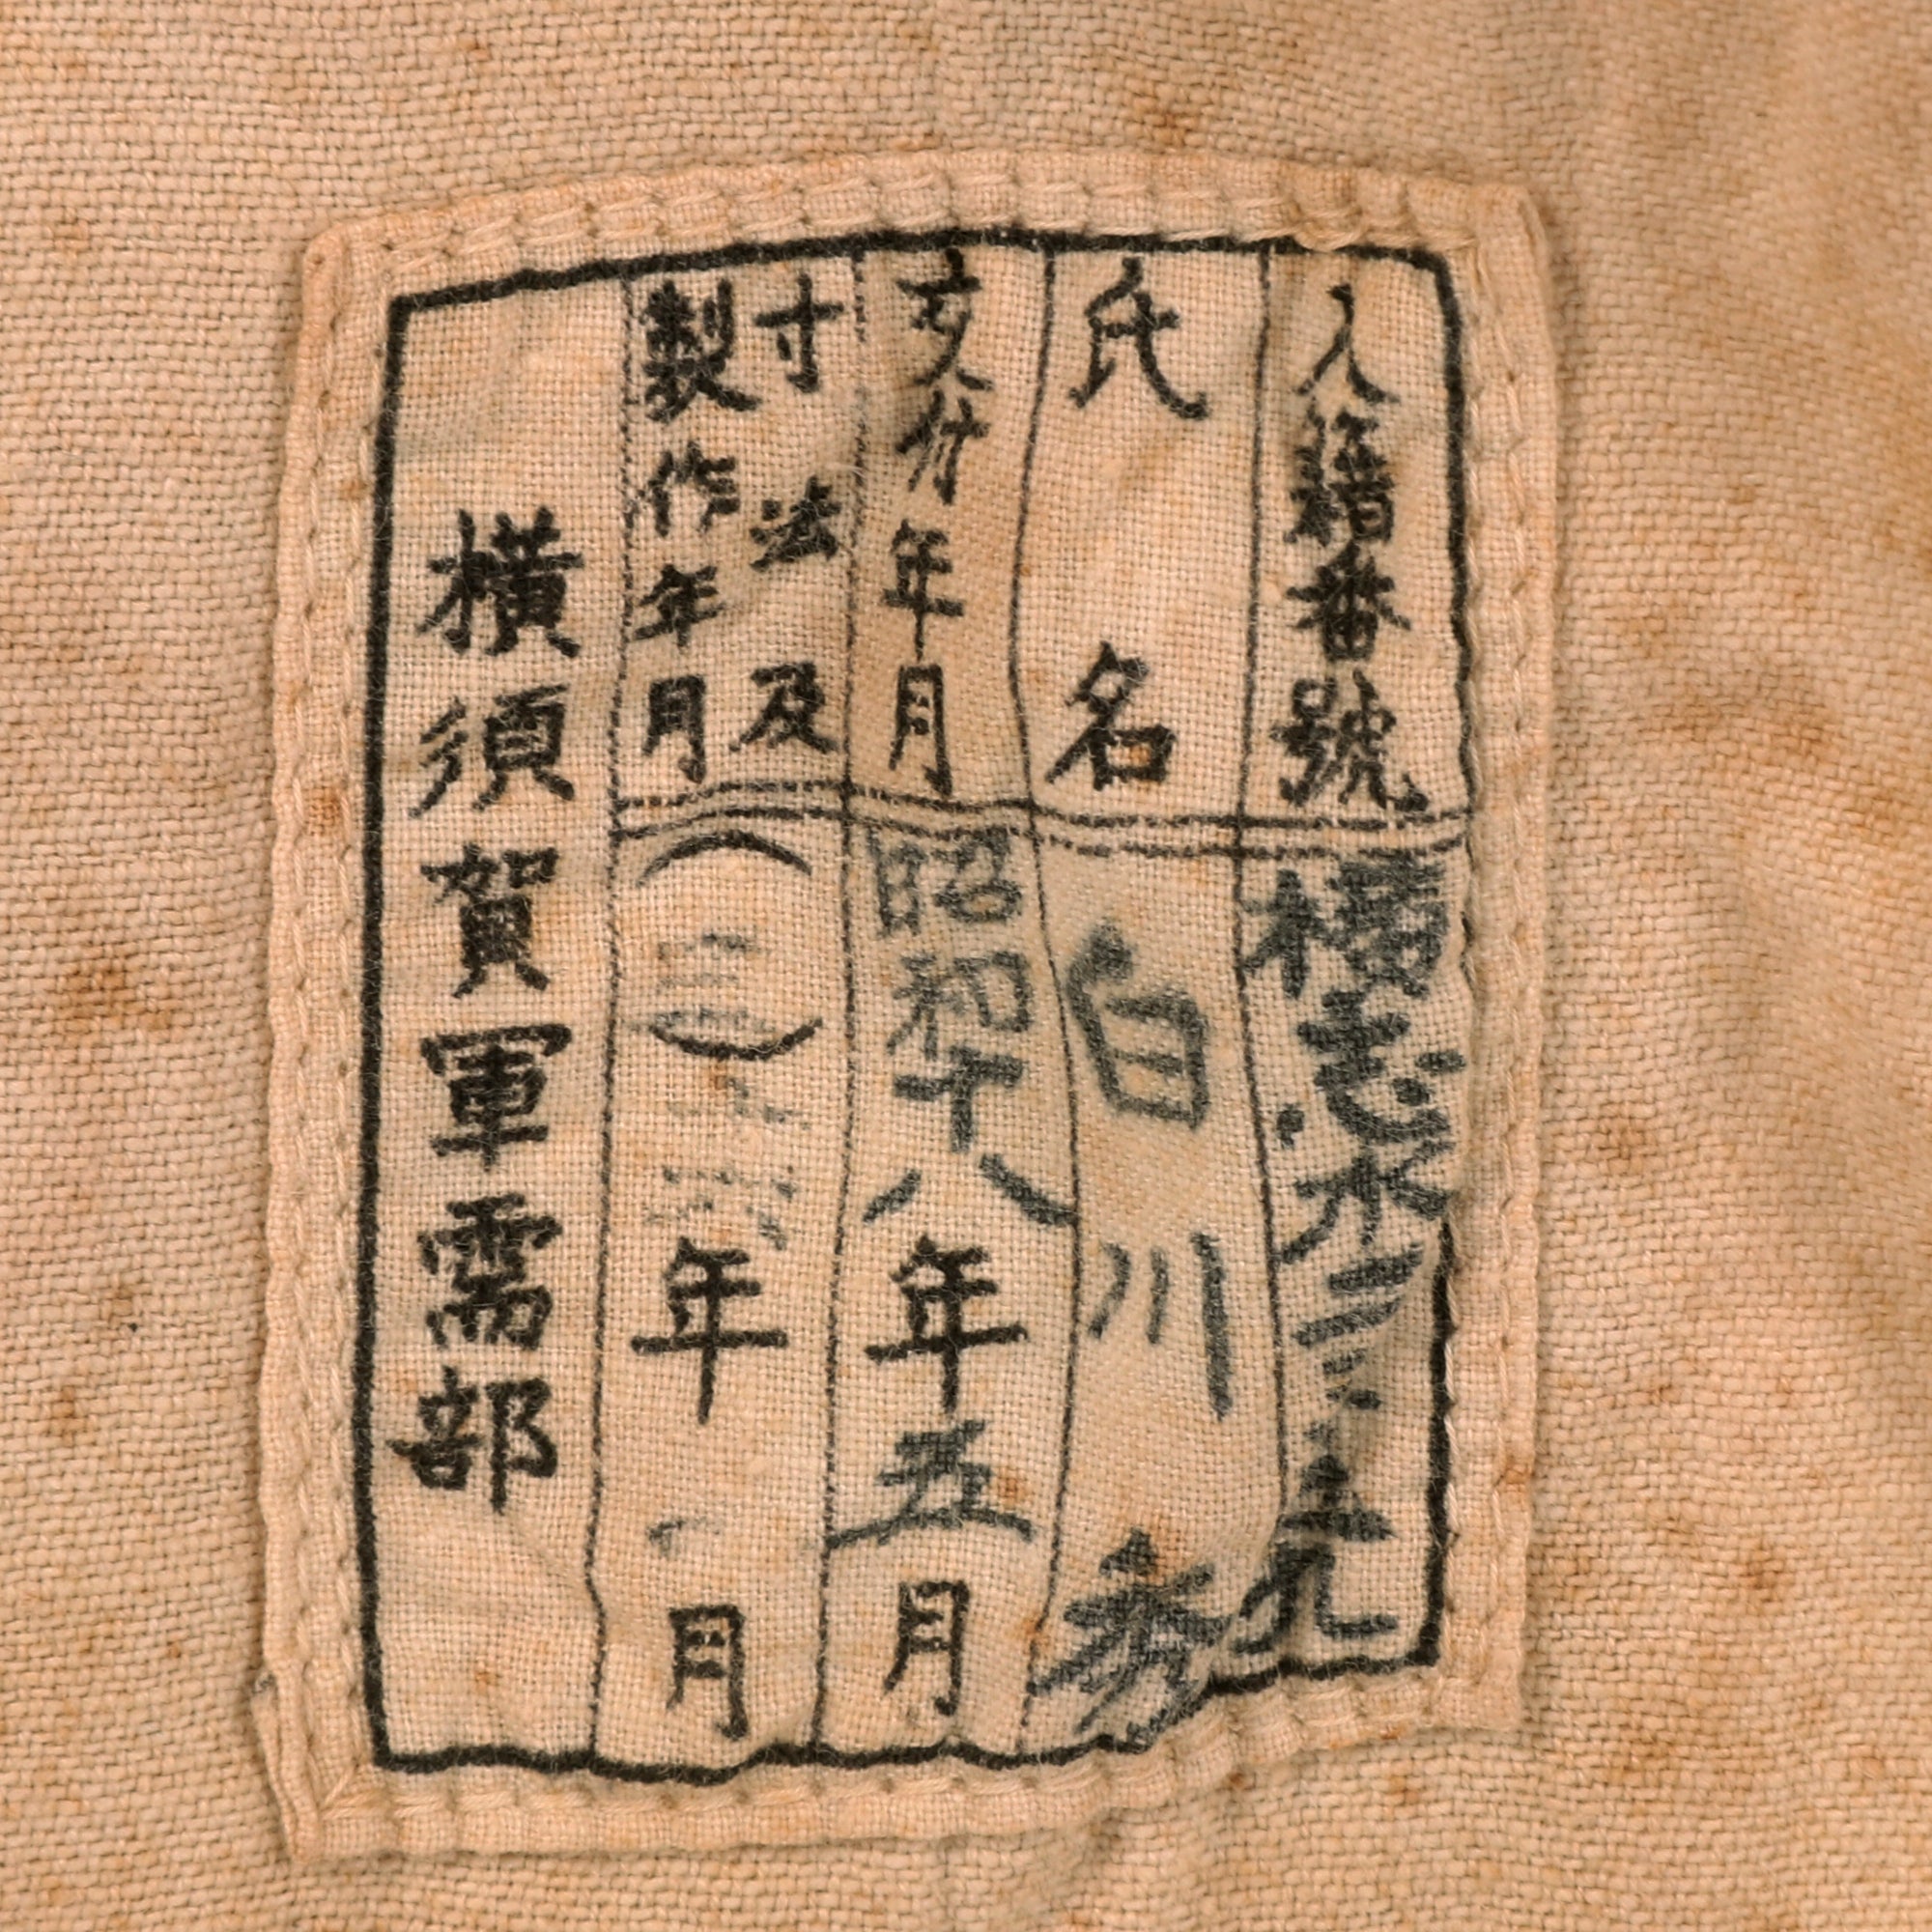 入籍番號 横志水三 五九
氏名 白川 秀
交付年月 昭和十八年五月
寸法及
製作年月 (三) 年 一月
横須賀軍需部